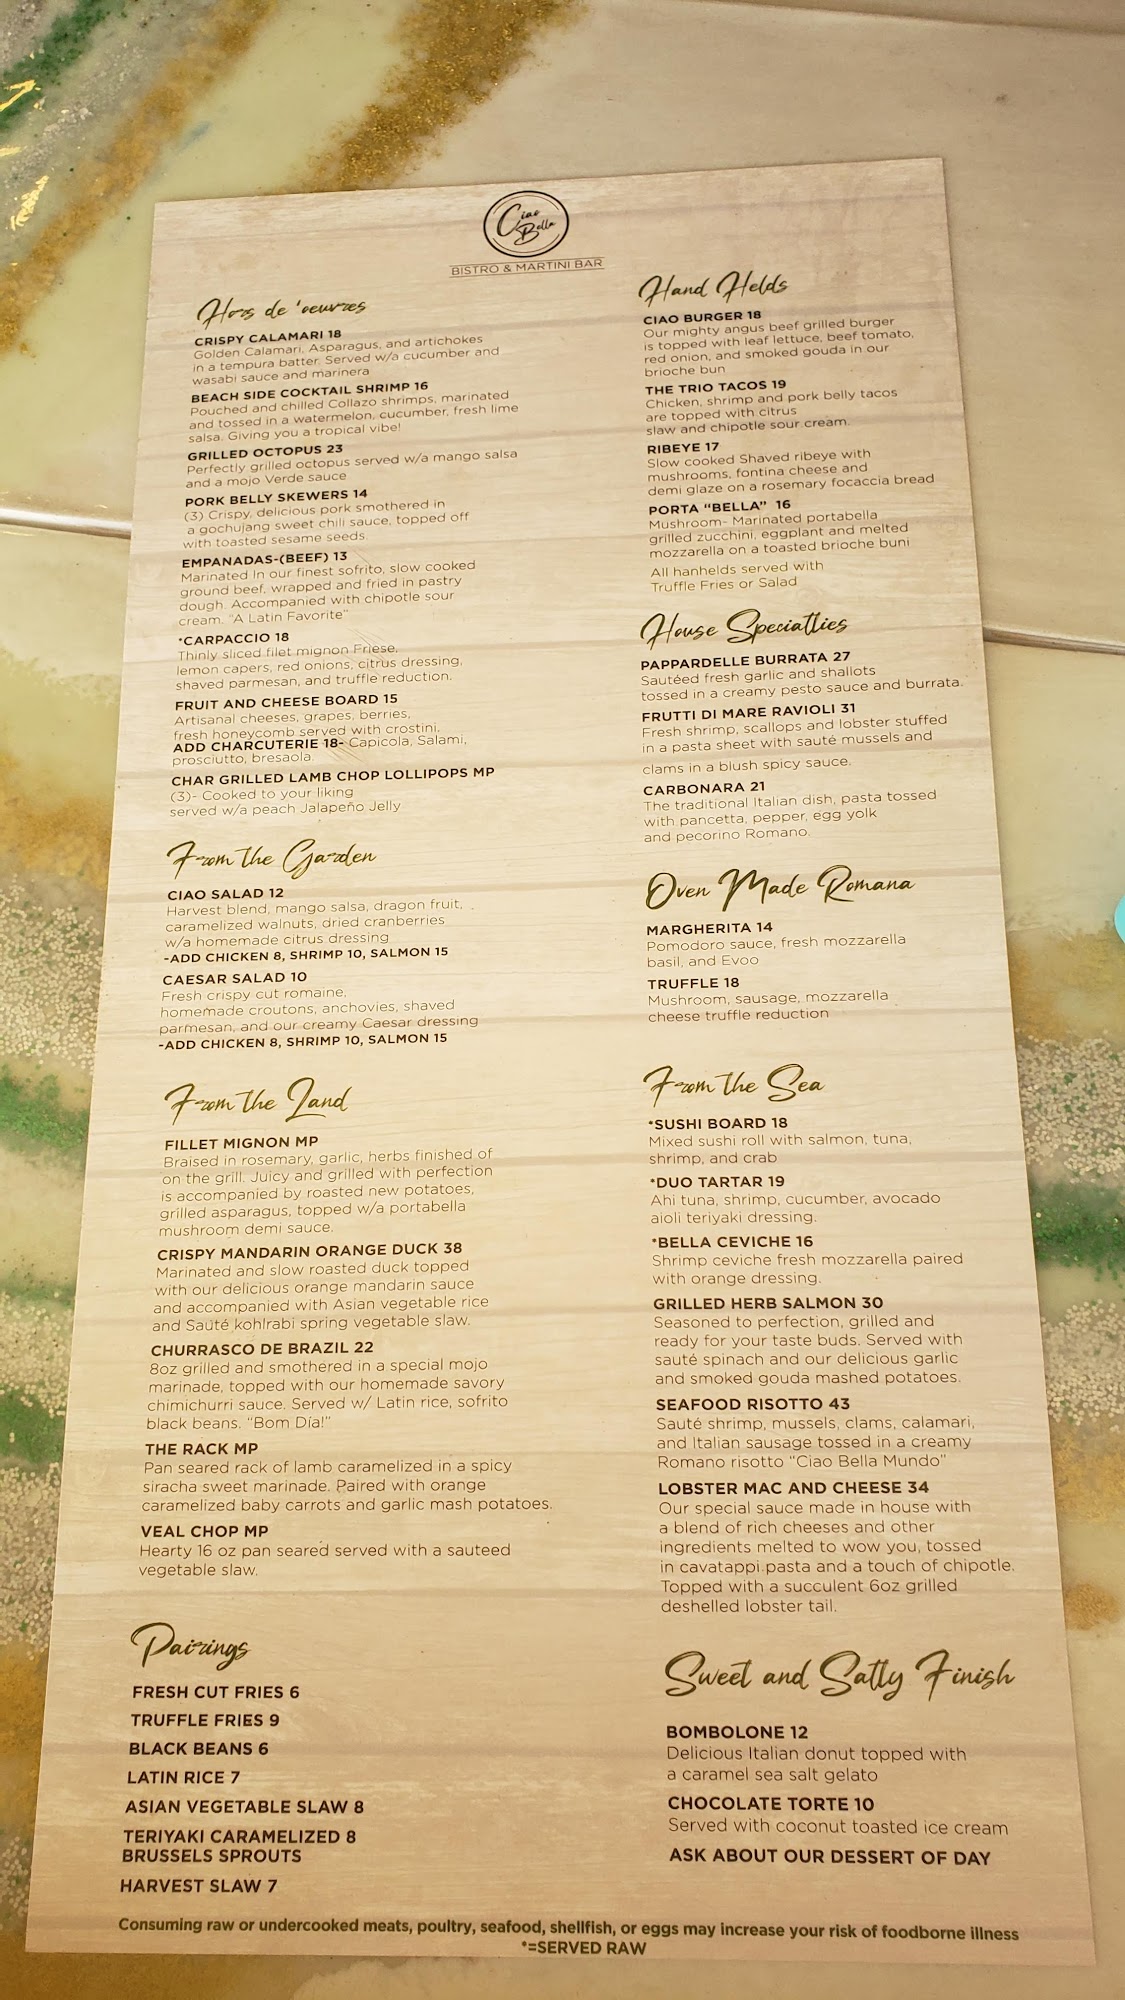 Ciao
Bella
BISTRO & MARTINI BAR
Hors de 'oeuvres
CRISPY CALAMARI 18
Golden Calamari, Asparagus, and artichokes
in a tempura batter. Served w/a cucumber and
wasabi sauce and marinera
BEACH SIDE COCKTAIL SHRIMP 16
Pouched and chilled Collazo shrimps, marinated
and tossed in a watermelon, cucumber, fresh lime
salsa. Giving you a tropical vibe!
GRILLED OCTOPUS 23
Perfectly grilled octopus served w/a mango salsa
and a mojo Verde sauce
PORK BELLY SKEWERS 14
(3) Crispy, delicious pork smothered in
a gochujang sweet chili sauce, topped off
with toasted sesame seeds.
EMPANADAS-(BEEF) 13
Marinated In our finest sofrito, slow cooked
ground beef, wrapped and fried in pastry
dough. Accompanied with chipotle sour
cream. "A Latin Favorite"
*CARPACCIO 18
Thinly sliced filet mignon Friese,
lemon capers, red onions, citrus dressing,
shaved parmesan, and truffle reduction.
FRUIT AND CHEESE BOARD 15
Artisanal cheeses, grapes, berries,
fresh honeycomb served with crostini.
ADD CHARCUTERIE 18- Capicola, Salami,
prosciutto, bresaola.
CHAR GRILLED LAMB CHOP LOLLIPOPS MP
(3)- Cooked to your liking
served w/a peach Jalapeño Jelly
From the Garden
CIAO SALAD 12
Harvest blend, mango salsa, dragon fruit,
caramelized walnuts, dried cranberries
w/a homemade citrus dressing
-ADD CHICKEN 8, SHRIMP 10, SALMON 15
CAESAR SALAD 10
Fresh crispy cut romaine,
homemade croutons, anchovies, shaved
parmesan, and our creamy Caesar dressing
-ADD CHICKEN 8, SHRIMP 10, SALMON 15
From the Land
FILLET MIGNON MP
Braised in rosemary, garlic, herbs finished of
on the grill. Juicy and grilled with perfection
is accompanied by roasted new potatoes,
grilled asparagus, topped w/a portabella
mushroom demi sauce.
CRISPY MANDARIN ORANGE DUCK 38
Marinated and slow roasted duck topped
with our delicious orange mandarin sauce
and accompanied with Asian vegetable rice
and Sauté kohlrabi spring vegetable slaw.
CHURRASCO DE BRAZIL 22
8oz grilled and smothered in a special mojo
marinade, topped with our homemade savory
chimichurri sauce. Served w/ Latin rice, sofrito
black beans. "Bom Día!"
THE RACK MP
Pan seared rack of lamb caramelized in a spicy
siracha sweet marinade. Paired with orange
caramelized baby carrots and garlic mash potatoes.
VEAL CHOP MP
Hearty 16 oz pan seared served with a sauteed
vegetable slaw.
Pairings
FRESH CUT FRIES 6
TRUFFLE FRIES 9
BLACK BEANS 6
LATIN RICE 7
ASIAN VEGETABLE SLAW 8
TERIYAKI CARAMELIZED 8
BRUSSELS SPROUTS
HARVEST SLAW 7
Hand Helds
CIAO BURGER 18
Our mighty angus beef grilled burger
is topped with leaf lettuce, beef tomato,
red onion, and smoked gouda in our
brioche bun
THE TRIO TACOS 19
Chicken, shrimp and pork belly tacos
are topped with citrus
slaw and chipotle sour cream.
RIBEYE 17
Slow cooked Shaved ribeye with
mushrooms, fontina cheese and
demi glaze on a rosemary focaccia bread
PORTA "BELLA" 16
Mushroom- Marinated portabella
grilled zucchini, eggplant and melted
mozzarella on a toasted brioche buni
All hanhelds served with
Truffle Fries or Salad
House Speciatlies
PAPPARDELLE BURRATA 27
Sautéed fresh garlic and shallots
tossed in a creamy pesto sauce and burrata.
FRUTTI DI MARE RAVIOLI 31
Fresh shrimp, scallops and lobster stuffed
in a pasta sheet with sauté mussels and
clams in a blush spicy sauce.
CARBONARA 21
The traditional Italian dish, pasta tossed
with pancetta, pepper, egg yolk
and pecorino Romano.
Oven Made Romana
MARGHERITA 14
Pomodoro sauce, fresh mozzarella
basil, and Evoo
TRUFFLE 18
Mushroom, sausage, mozzarella
cheese truffle reduction
From the Sea
*SUSHI BOARD 18
Mixed sushi roll with salmon, tuna,
shrimp, and crab
*DUO TARTAR 19
Ahi tuna, shrimp, cucumber, avocado
aioli teriyaki dressing.
*BELLA CEVICHE 16
Shrimp ceviche fresh mozzarella paired
with orange dressing.
GRILLED HERB SALMON 30
Seasoned to perfection, grilled and
ready for your taste buds. Served with
sauté spinach and our delicious garlic
and smoked gouda mashed potatoes.
SEAFOOD RISOTTO 43
Sauté shrimp, mussels, clams, calamari,
and Italian sausage tossed in a creamy
Romano risotto "Ciao Bella Mundo"
LOBSTER MAC AND CHEESE 34
Our special sauce made in house with
a blend of rich cheeses and other
ingredients melted to wow you, tossed
in cavatappi pasta and a touch of chipotle.
Topped with a succulent 6oz grilled
deshelled lobster tail.
Sweet and Satly Finish
BOMBOLONE 12
Delicious Italian donut topped with
a caramel sea salt gelato
CHOCOLATE TORTE 10
Served with coconut toasted ice cream
ASK ABOUT OUR DESSERT OF DAY
Consuming raw or undercooked meats, poultry, seafood, shellfish, or eggs may increase your risk of foodborne illness
*=SERVED RAW